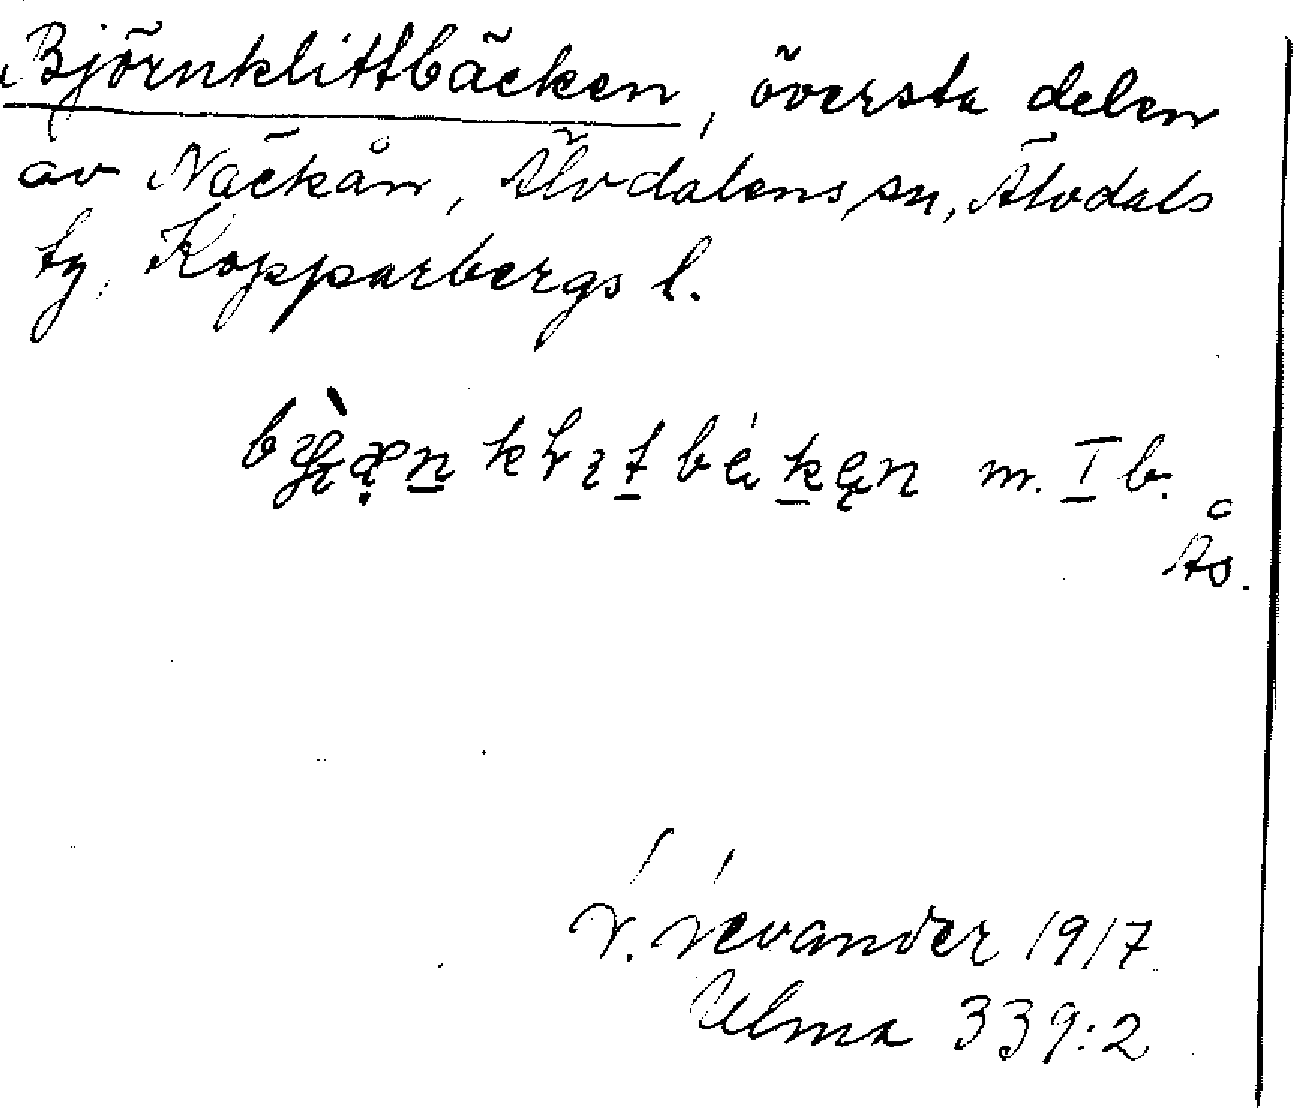 Björnklittbäcken, översta delen
av Näckån, Älvdalens sn, Älvdals
tg, Kopparbergs l.
m. I b.
Ås.
L. Levander 1917
Ulma 339:2